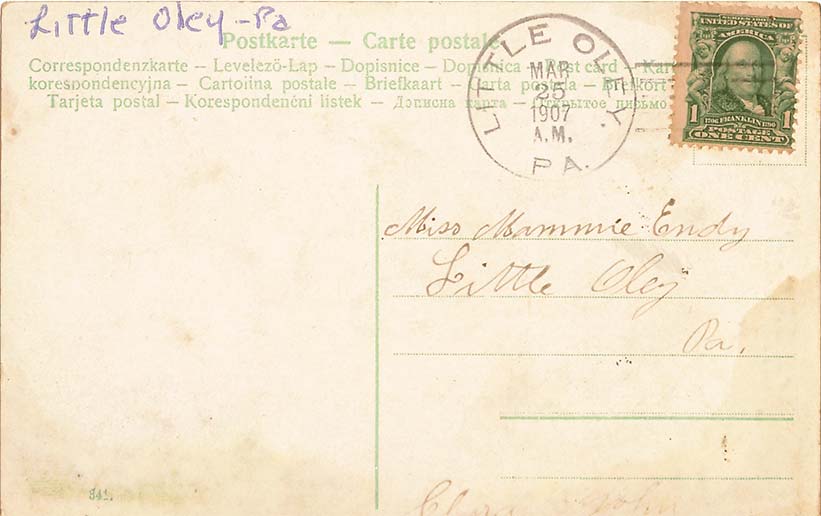 Little Oley-Pa
Postkarte — Carte postale
Correspondenzkarte – Levelező-Lap – Dopisnice – Dopisnica – Post card – Kar
korespondencyjna – Cartolina postale – Briefkaart – Karta postala – Brefkort
Tarjeta postal – Korespondenční listek – Дописна карта – Открытое письмо
LITTLE OLEY.
MAR
25
1907
A.M.
PA.
SERIES 1902
UNITED STATES OF
AMERICA
1706 FRANKLIN 1790
POSTAGE
1 ONE CENT 1
Miss Mammie Endy
Little Oley
Pa.
341.